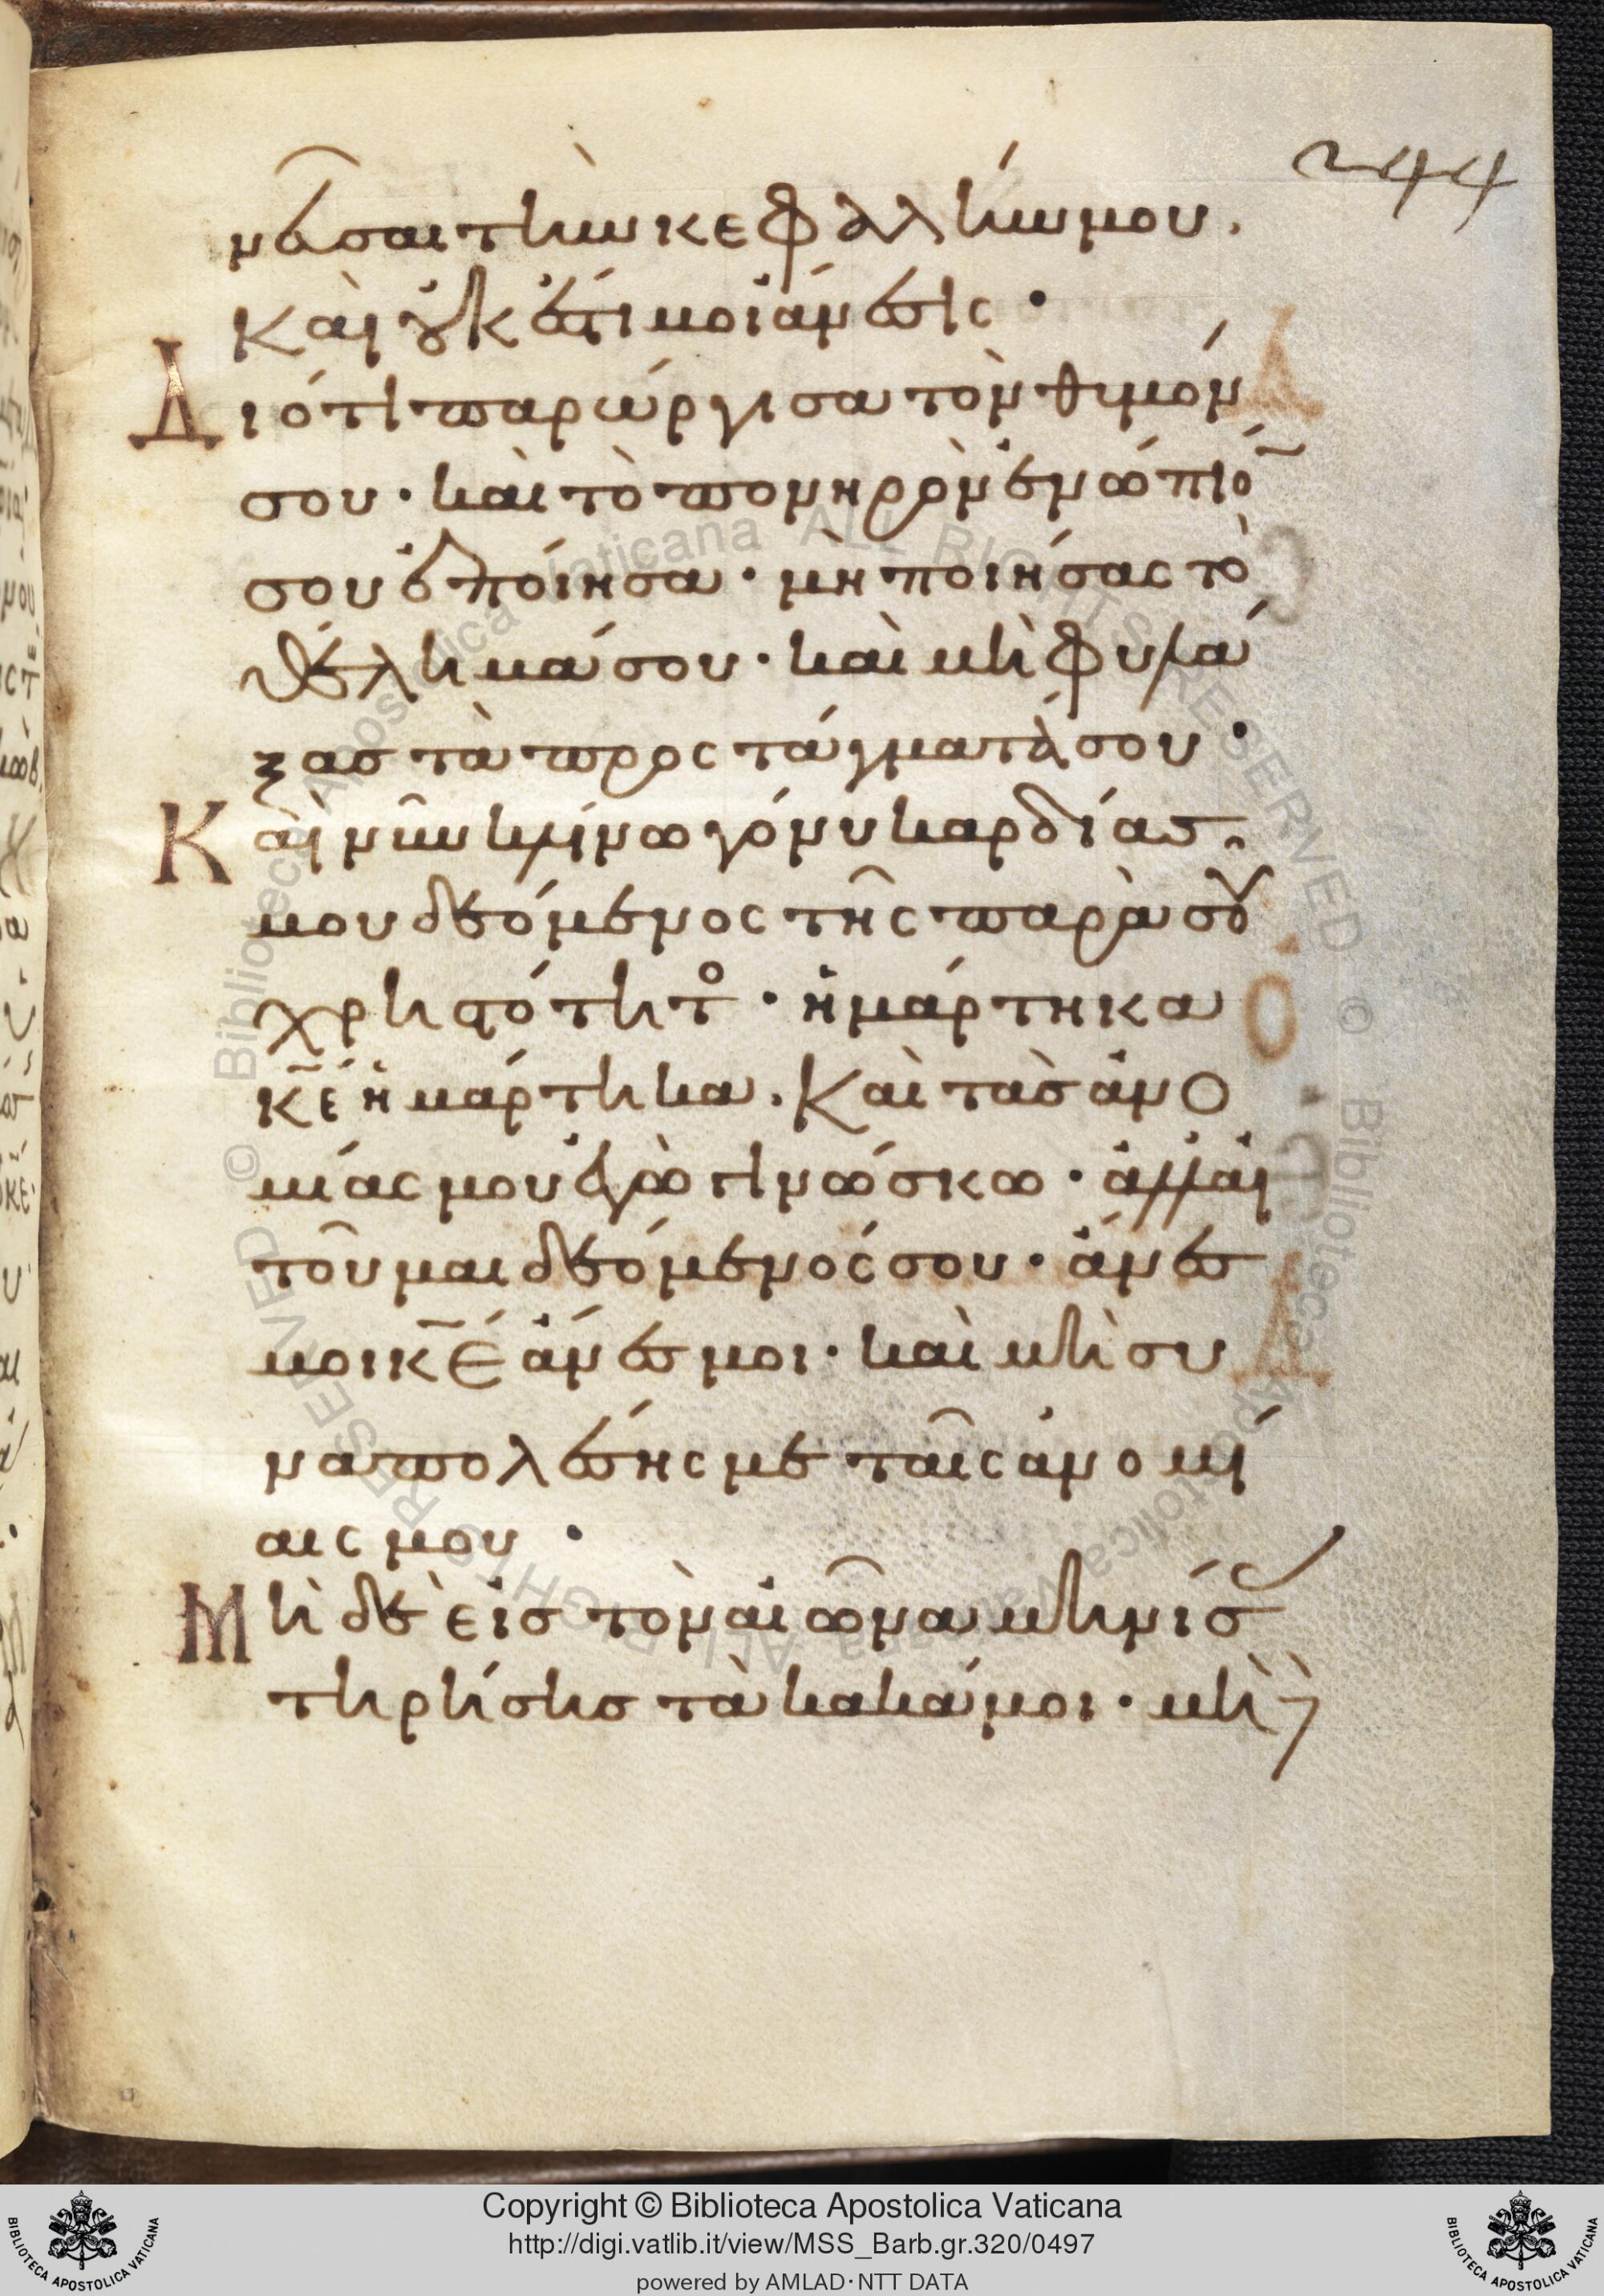 244
νεῦσαι τὴν κεφαλήν μου.
Καὶ οὐκ ἔστι μοι ἄνεσις·
Διότι παρώργισα τὸν θυμόν
σου· καὶ τὸ πονηρὸν ἐνώπιο̄
σου ἐποίησα· μὴ ποιήσας τὸ
θέλημά σου· καὶ μὴ φυλά
ξας τὰ προςτάγματά σου·
Καὶ νῦν κλίνω γόνυ καρδίας
μου δεόμενος τῆς παρὰ σοῦ
χρηστότητο· ἡμάρτηκα
κ̄ε̄ ἡμάρτηκα. Καὶ τὰς ἀνο
μίας μου ἐγὼ γινώσκω· ἀλλ' αἰ
τοῦμαι δεόμενός σου· ἄνες
μοι κ̄ε̄ ἄνες μοι· καὶ μὴ συ
ναπολέσῃς με ταῖς ἀνομί
αις μου·
Μὴ δὲ εἰς τὸν αἰῶνα μηνίσας
τηρήσῃς τὰ κακά μοι· μὴ
Copyright © Biblioteca Apostolica Vaticana
http://digi.vatlib.it/view/MSS_Barb.gr.320/0497
powered by AMLAD·NTT DATA
BIBLIOTECA APOSTOLICA VATICANA
BIBLIOTECA APOSTOLICA VATICANA